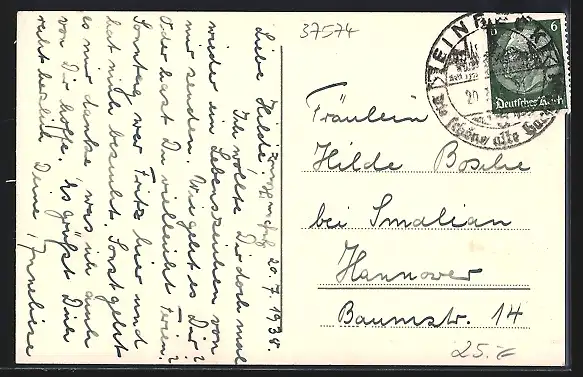 37574
20. 7. 1938.
Liebe Hilde,
Ich wollte Dir doch mal
wieder ein Lebenszeichen von
mir senden. Wie geht es Dir?
Oder hast Du vielleicht Ferien?
Sonntag war Fritz hier und
hat mich besucht. Sonst geht
es mir danke, was ich auch
von Dir hoffe. Es grüßt Dich
recht herzlich Deine Anneliese
EINBECK
20
6 6
Deutsches Reich
alte
Fräulein
Hilde Bosche
bei Smalian
Hannover
Baumstr. 14
25.-